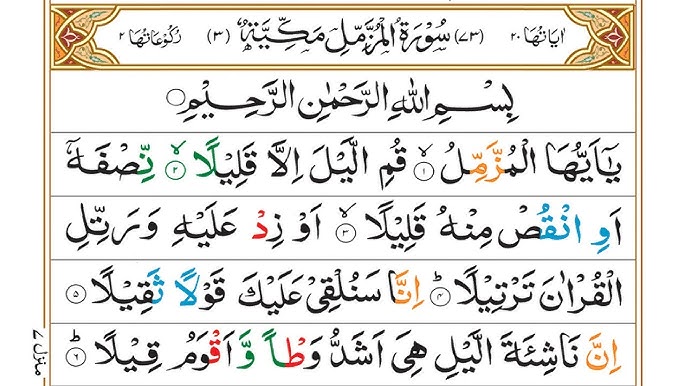 اٰيَاتُهَا ٢٠ (٧٣) سُوْرَةُ الْمُزَّمِّلِ مَكِّيَّةٌ (٣) رُكُوْعَاتُهَا ٢
بِسْمِ اللهِ الرَّحْمٰنِ الرَّحِيْمِ
يٰٓاَيُّهَا الْمُزَّمِّلُ ۙ﴿١﴾ قُمِ الَّيْلَ اِلَّا قَلِيْلًا ۙ﴿٢﴾ نِّصْفَهٗٓ
اَوِ انْقُصْ مِنْهُ قَلِيْلًا ۙ﴿٣﴾ اَوْ زِدْ عَلَيْهِ وَ رَتِّلِ
الْقُرْاٰنَ تَرْتِيْلًا ؕ﴿٤﴾ اِنَّا سَنُلْقِيْ عَلَيْكَ قَوْلًا ثَقِيْلًا ﴿٥﴾
اِنَّ نَاشِئَةَ الَّيْلِ هِيَ اَشَدُّ وَطْاً وَّ اَقْوَمُ قِيْلًا ؕ﴿٦﴾
منزل ٧